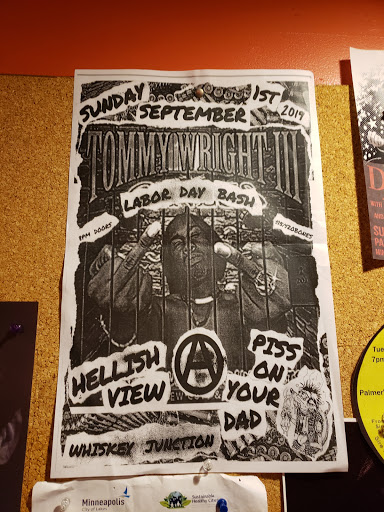 SUNDAY 1ST
SEPTEMBER 2019
TOMMY WRIGHT III
LABOR DAY BASH
9PM DOORS
HELLISH
VIEW
PISS
ON
YOUR
DAD
WHISKEY JUNCTION
Tue
7pm
Palmer's
Minneapolis
City of Lakes
Sustainable